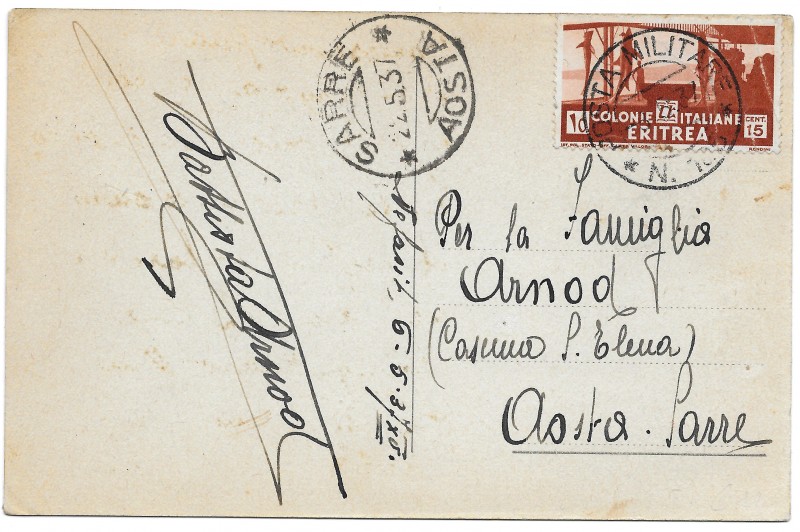 SARRE * AOSTA *
22.5.37
POSTA MILITARE *
* N.
COLONIE ITALIANE
ERITREA
CENT. 15
Battista Arnod
6.5.37 XV.
Per la Famiglia
Arnod
(Cascina S. Elena)
Aosta. Sarre